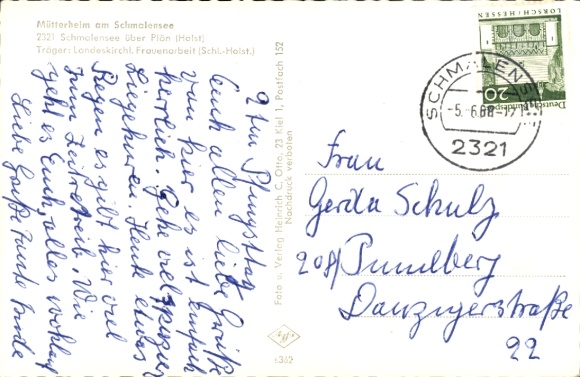 Mütterheim am Schmalensee
2321 Schmalensee über Plön (Holst)
Träger: Landeskirchl. Frauenarbeit (Schl.-Holst.)
2 ten Pfingsttag
Euch allen liebe Grüße
von hier es ist einfach
herrlich. Gehe viel spazieren
Liegekuren. Heute etwas
Regen es gibt hier viel
zum Zeitvertreib. Wie
geht es Euch, alles wohlauf
Liebe Grüße Tante
Foto u. Verlag Heinrich C. Otto, 23 Kiel 1, Postfach 152
Nachdruck verboten
c 352
LORSCH/HESSEN
Deutsche Bundespost
20
SCHMALENSEE
-5.-6.68-17
2321
Frau
Gerda Schulz
208 Pinneberg
Danzigerstraße
22